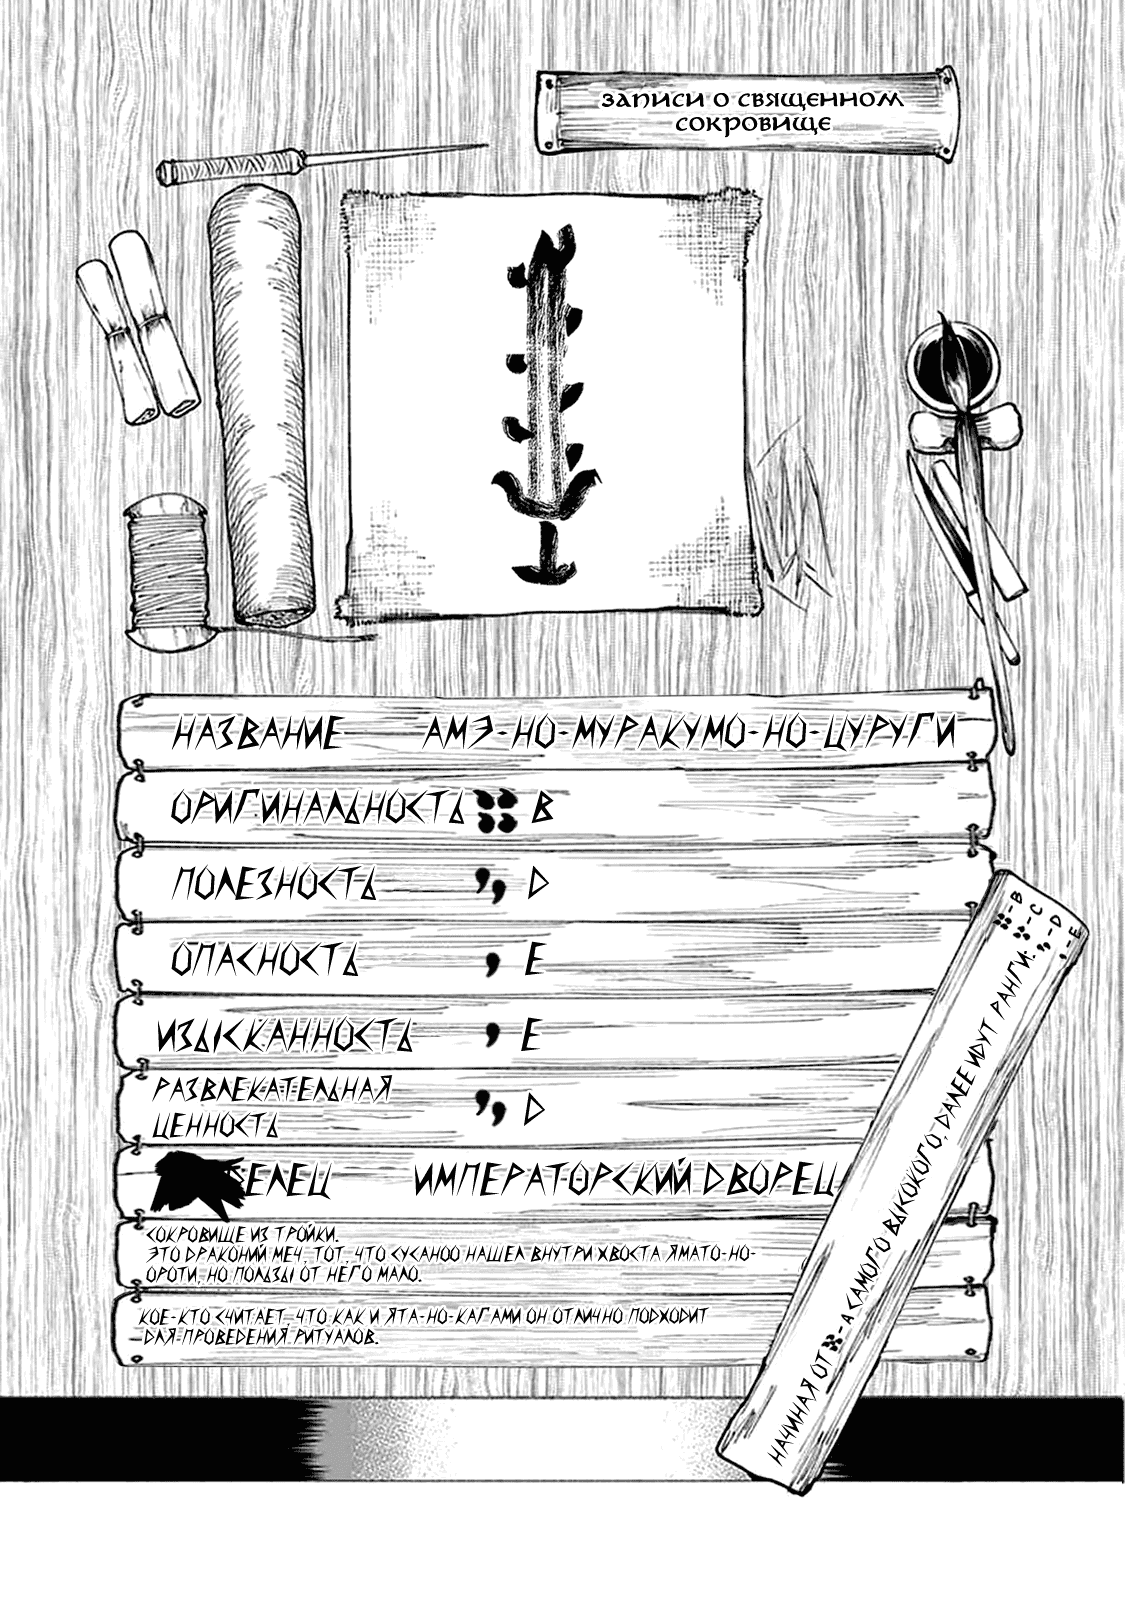 ЗАПИСИ О СВЯЩЕННОМ
СОКРОВИЩЕ
НАЗВАНИЕ АМЭ-НО-МУРАКУМО-НО-ЦУРУГИ
ОРИГИНАЛЬНОСТЬ B
ПОЛЕЗНОСТЬ D
ОПАСНОСТЬ E
ИЗЫСКАННОСТЬ E
РАЗВЛЕКАТЕЛЬНАЯ
ЦЕННОСТЬ D
ЕЛЕЦ ИМПЕРАТОРСКИЙ ДВОРЕЦ
СОКРОВИЩЕ ИЗ ТРОЙКИ.
ЭТО ДРАКОНИЙ МЕЧ, ТОТ, ЧТО СУСАНОО НАШЕЛ ВНУТРИ ХВОСТА ЯМАТО-НО-
ОРОТИ, НО ПОЛЬЗЫ ОТ НЕГО МАЛО.
КОЕ-КТО СЧИТАЕТ, ЧТО КАК И ЯТА-НО-КАГАМИ ОН ОТЛИЧНО ПОДХОДИТ
ДЛЯ ПРОВЕДЕНИЯ РИТУАЛОВ.
НАЧИНАЯ ОТ - А САМОГО ВЫСОКОГО, ДАЛЕЕ ИДУТ РАНГИ:
- B
- C
- D
- E